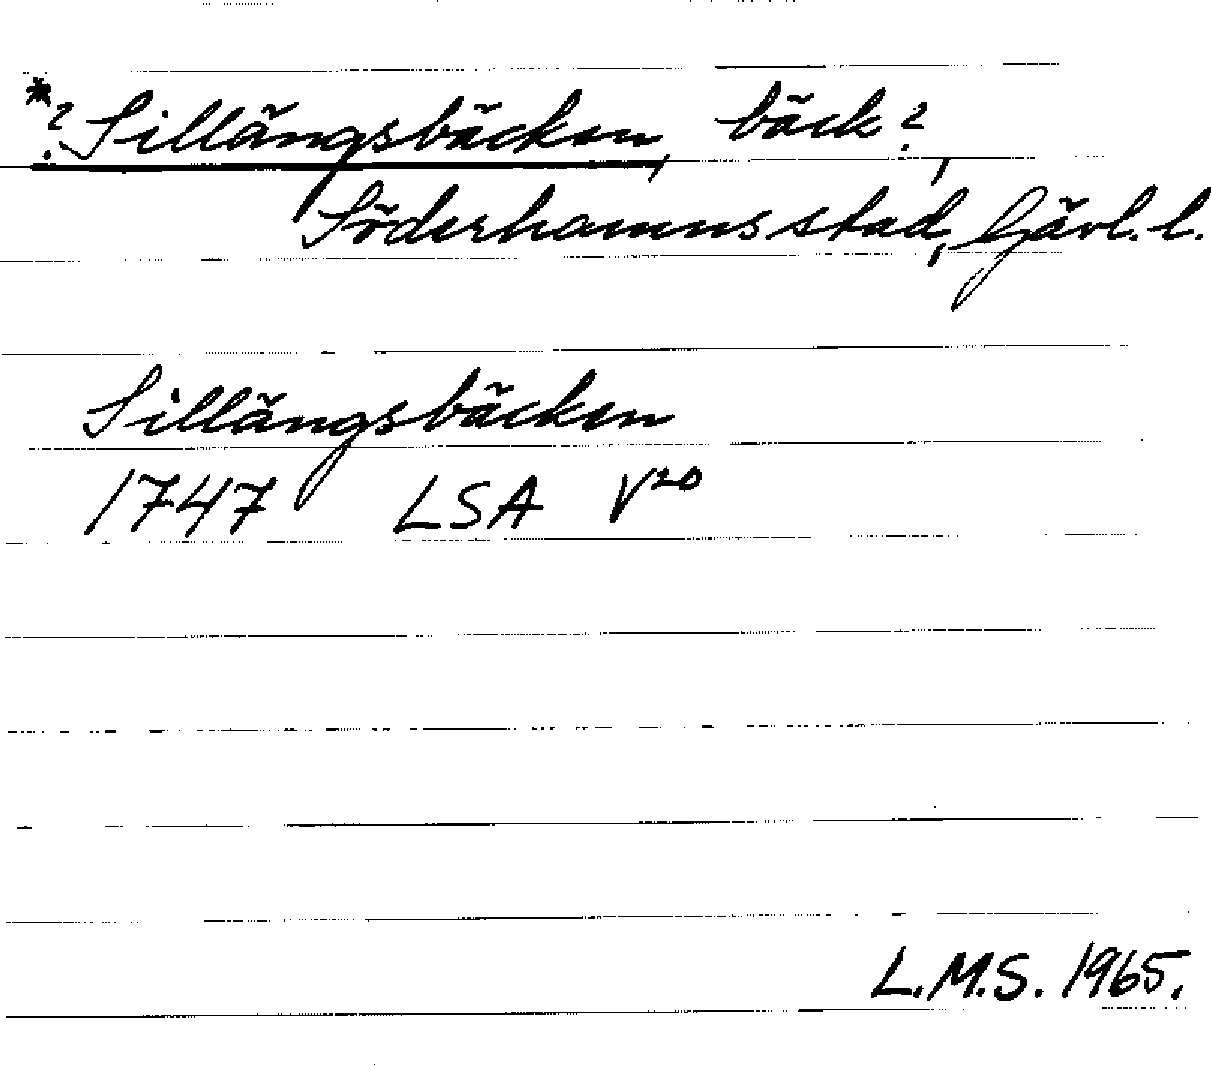 *? Sillängsbäcken, bäck?,
Söderhamns stad, Gävl. l.
Sillängsbäcken
1747 LSA V20
L.M.S. 1965.